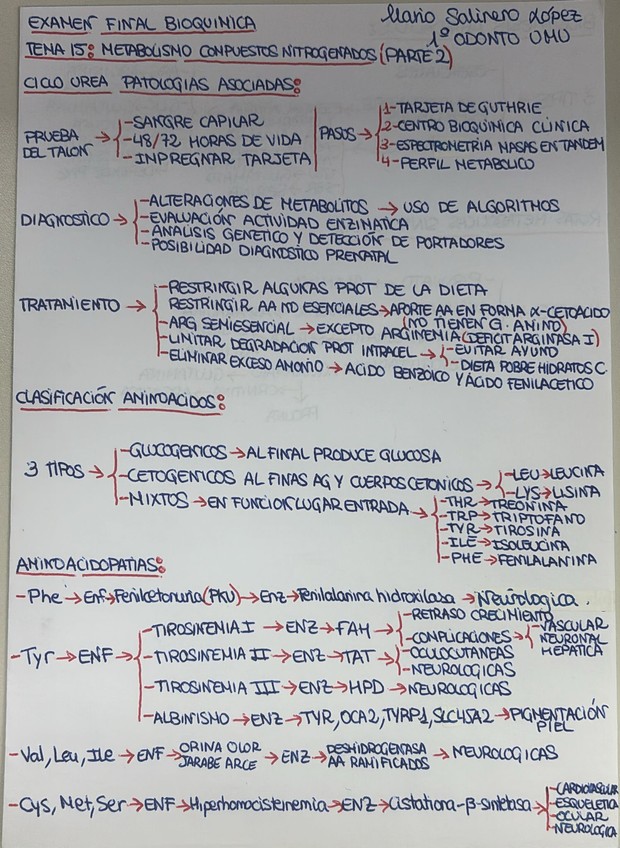 EXAMEN FINAL BIOQUIMICA
Mario Salinero López
1º ODONTO UMU
TEMA 15: METABOLISMO COMPUESTOS NITROGENADOS (PARTE 2)
CICLO UREA PATOLOGIAS ASOCIADAS:
PRUEBA DEL TALON →
-SANGRE CAPILAR
-48/72 HORAS DE VIDA
-IMPREGNAR TARJETA
PASOS
1-TARJETA DE GUTHRIE
2-CENTRO BIOQUIMICA CLÍNICA
3-ESPECTROMETRIA MASAS EN TANDEM
4-PERFIL METABOLICO
DIAGNOSTICO →
-ALTERACIONES DE METABOLITOS → USO DE ALGORITMOS
-EVALUACIÓN ACTIVIDAD ENZIMATICA
-ANALISIS GENETICO Y DETECCIÓN DE PORTADORES
-POSIBILIDAD DIAGNOSTICO PRENATAL
TRATAMIENTO →
-RESTRINGIR ALGUNAS PROT DE LA DIETA
RESTRINGIR AA NO ESENCIALES → APORTE AA EN FORMA α-CETOACIDO
(NO TIENEN G. AMINO)
-ARG SEMIESENCIAL → EXCEPTO ARGINEMIA (DEFICIT ARGINASA I)
-LIMITAR DEGRADACION PROT INTRACEL →
-EVITAR AYUNO
-DIETA POBRE HIDRATOS C.
-ELIMINAR EXCESO AMONIO → ACIDO BENZÓICO Y ÁCIDO FENILACETICO
CLASIFICACIÓN AMINOACIDOS:
3 TIPOS →
-GLUCOGENICOS → AL FINAL PRODUCE GLUCOSA
-CETOGENICOS AL FINAS AG Y CUERPOS CETONICOS →
-LEU → LEUCINA
-LYS → LISINA
-MIXTOS → EN FUNCION LUGAR ENTRADA →
-THR → TREONINA
-TRP → TRIPTOFANO
-TYR → TIROSINA
-ILE → ISOLEUCINA
-PHE → FENILALANINA
AMINOACIDOPATIAS:
-Phe → Enf → Fenilcetonuria (PKU) → Enz → Fenilalanina hidroxilasa → Neurologica.
-Tyr → ENF →
-TIROSINEMIA I → ENZ → FAH →
-RETRASO CRECIMIENTO
-COMPLICACIONES →
-VASCULAR
NEURONAL
HEPATICA
-TIROSINEMIA II → ENZ → TAT →
-OCULOCUTANEAS
-NEUROLOGICAS
-TIROSINEMIA III → ENZ → HPD → NEUROLOGICAS
-ALBINISMO → ENZ → TYR, OCA2, TYRP1, SLC45A2 → PIGMENTACIÓN PIEL
-Val, Leu, Ile → ENF → ORINA OLOR JARABE ARCE → ENZ → DESHIDROGENASA AA RAMIFICADOS → NEUROLOGICAS
-Cys, Met, Ser → ENF → Hiperhomocisteinemia → ENZ → Cistationa-β-sintetasa →
-CARDIOVASCULAR
-ESQUELETICA
-OCULAR
-NEUROLOGICA